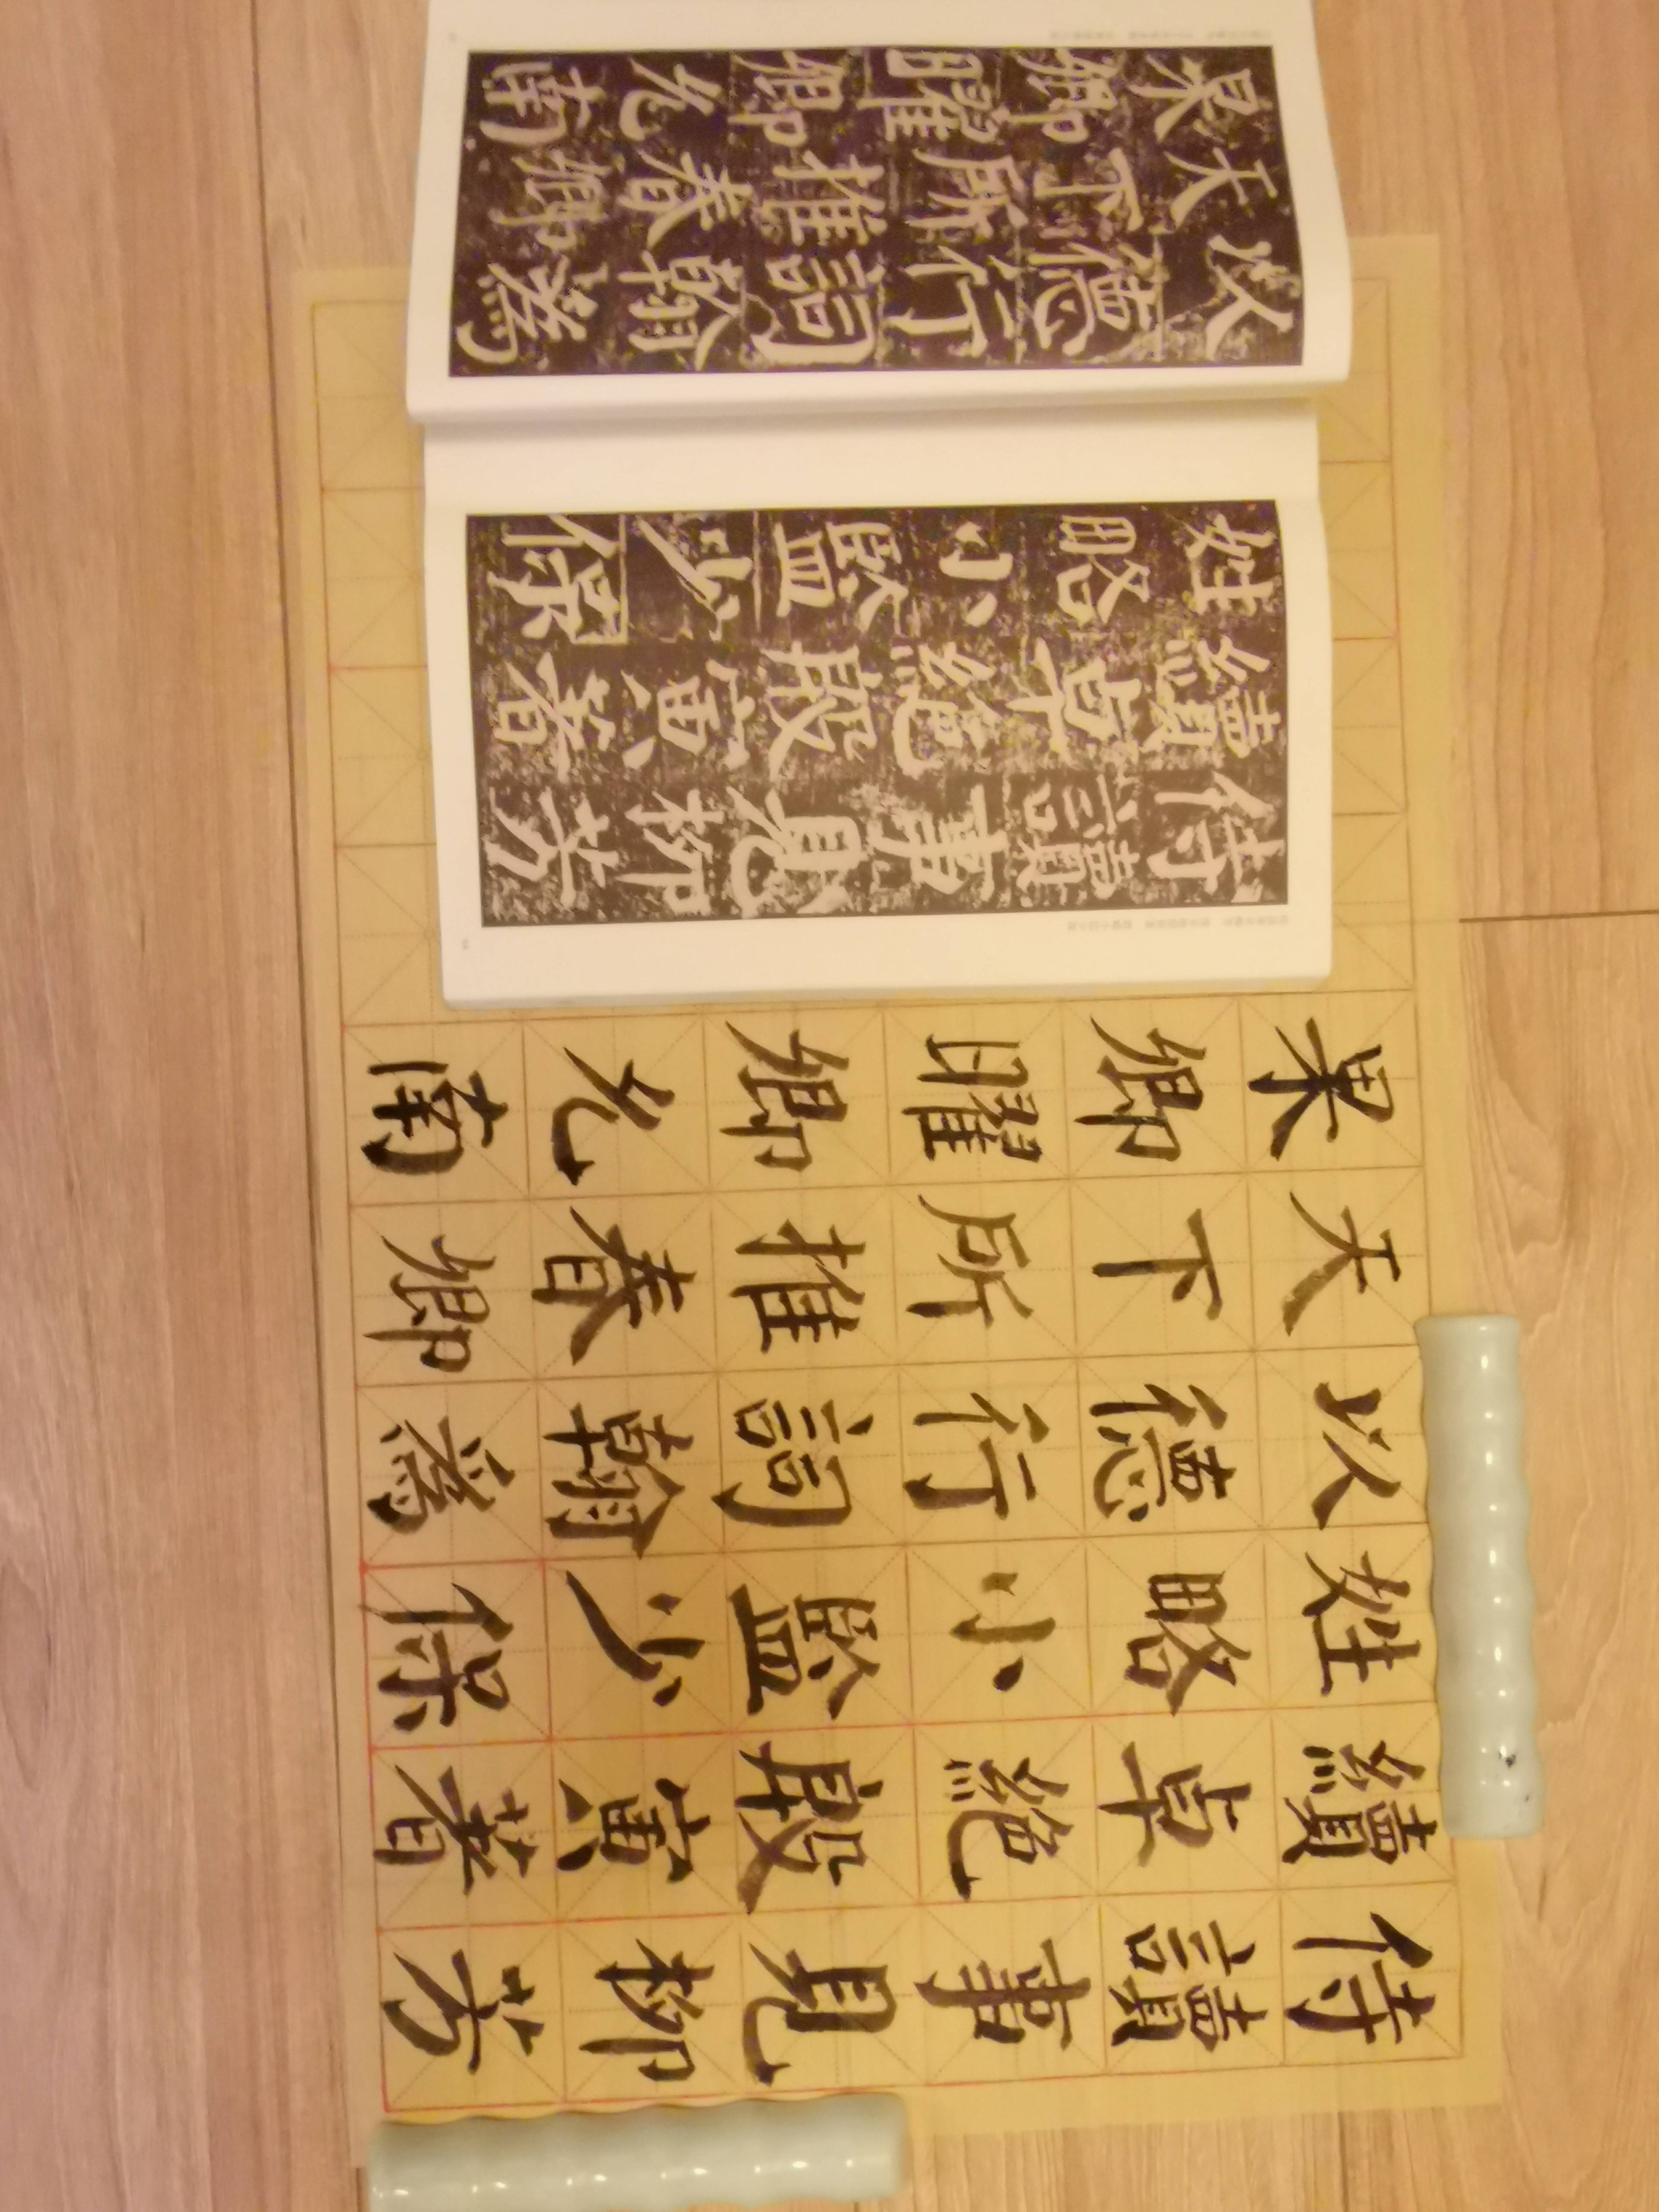 侍讀事見柳芳
續卓絕殿寅著
姓略小監少保
以德行詞翰為
天下所推春卿
杲卿曜卿允南
侍讀事見柳芳
續卓絕殿寅著
姓略小監少保
以德行詞翰為
天下所推春卿
杲卿曜卿允南